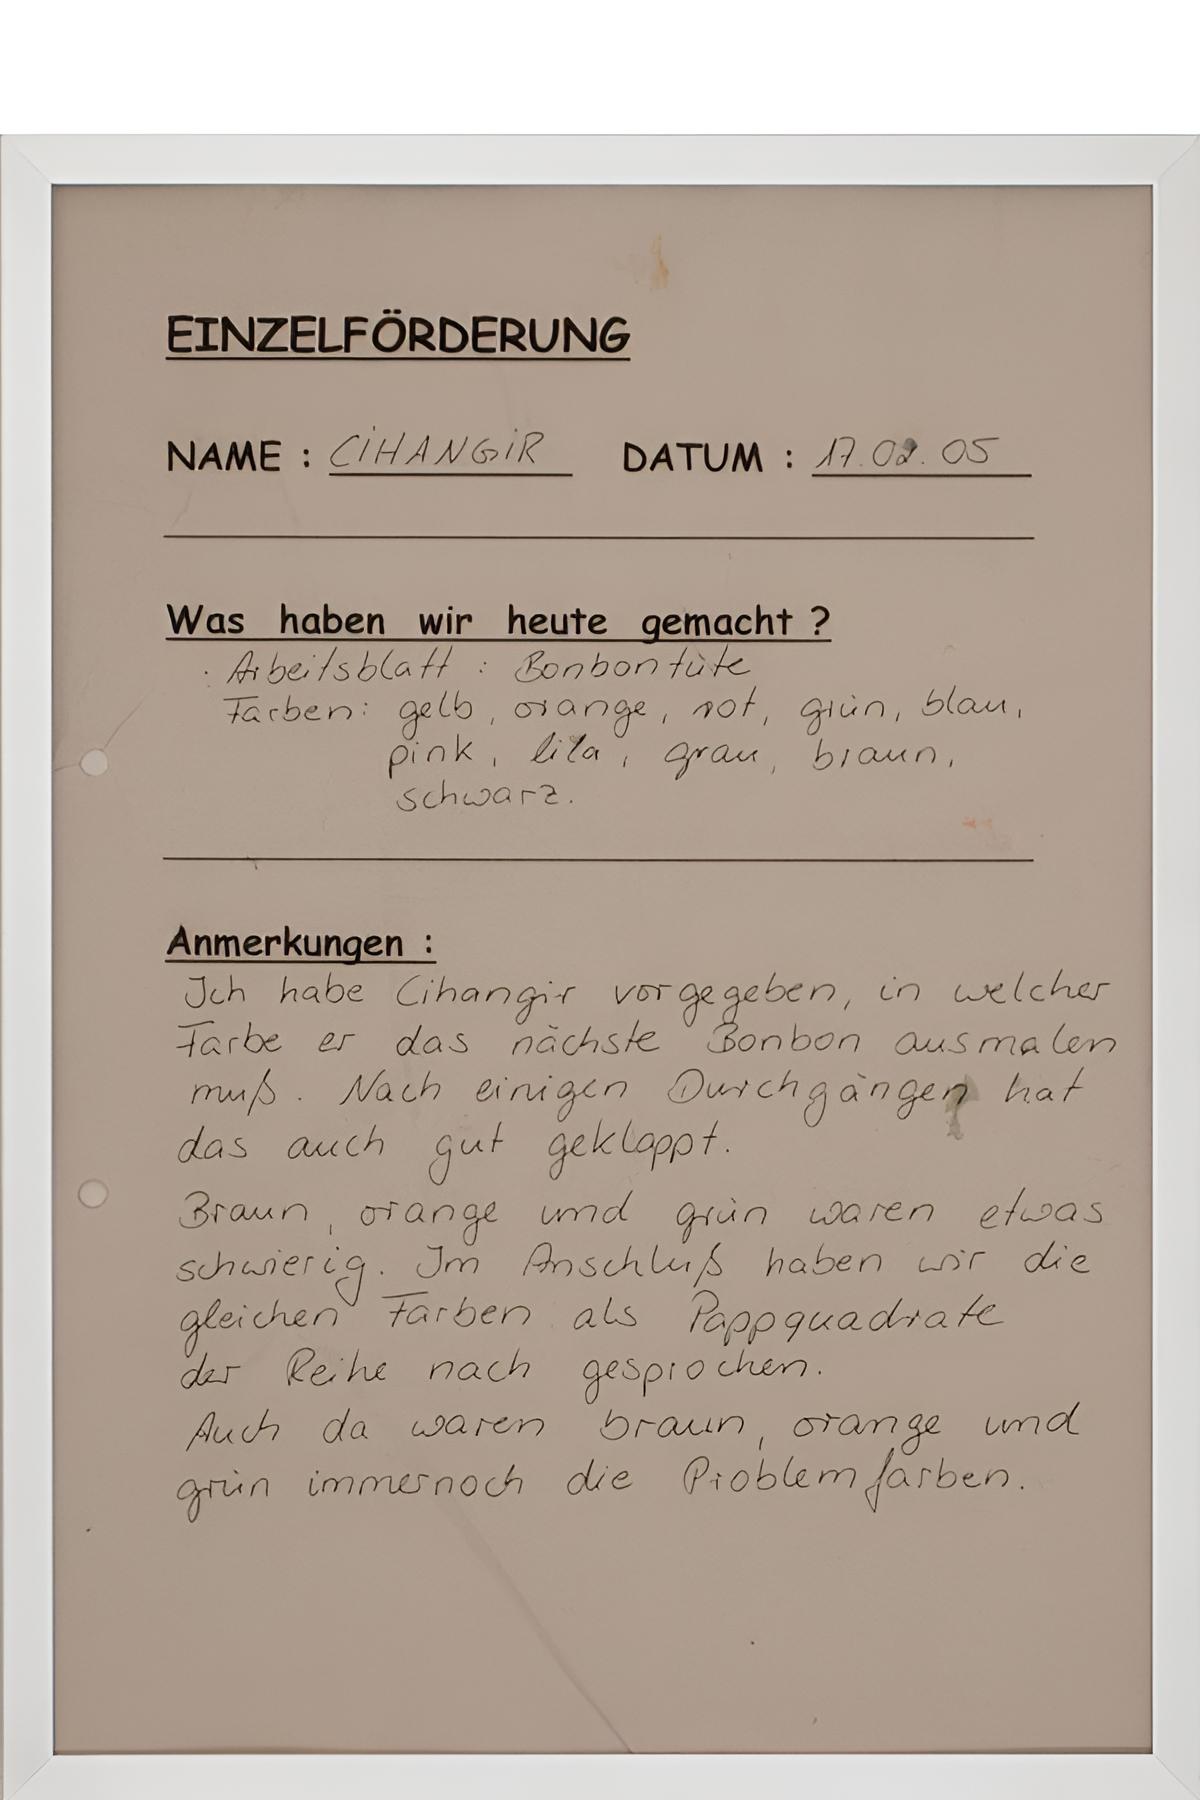 EINZELFÖRDERUNG
NAME : CİHANGİR DATUM : 17.02.05
Was haben wir heute gemacht ?
· Arbeitsblatt : Bonbontüte
Farben: gelb, orange, rot, grün, blau,
pink, lila, grau, braun,
schwarz.
Anmerkungen :
Ich habe Cihangir vorgegeben, in welcher
Farbe er das nächste Bonbon ausmalen
muß. Nach einigen Durchgängen hat
das auch gut geklappt.
Braun, orange und grün waren etwas
schwierig. Im Anschluß haben wir die
gleichen Farben als Pappquadrate
der Reihe nach gesprochen.
Auch da waren braun, orange und
grün immernoch die Problemfarben.